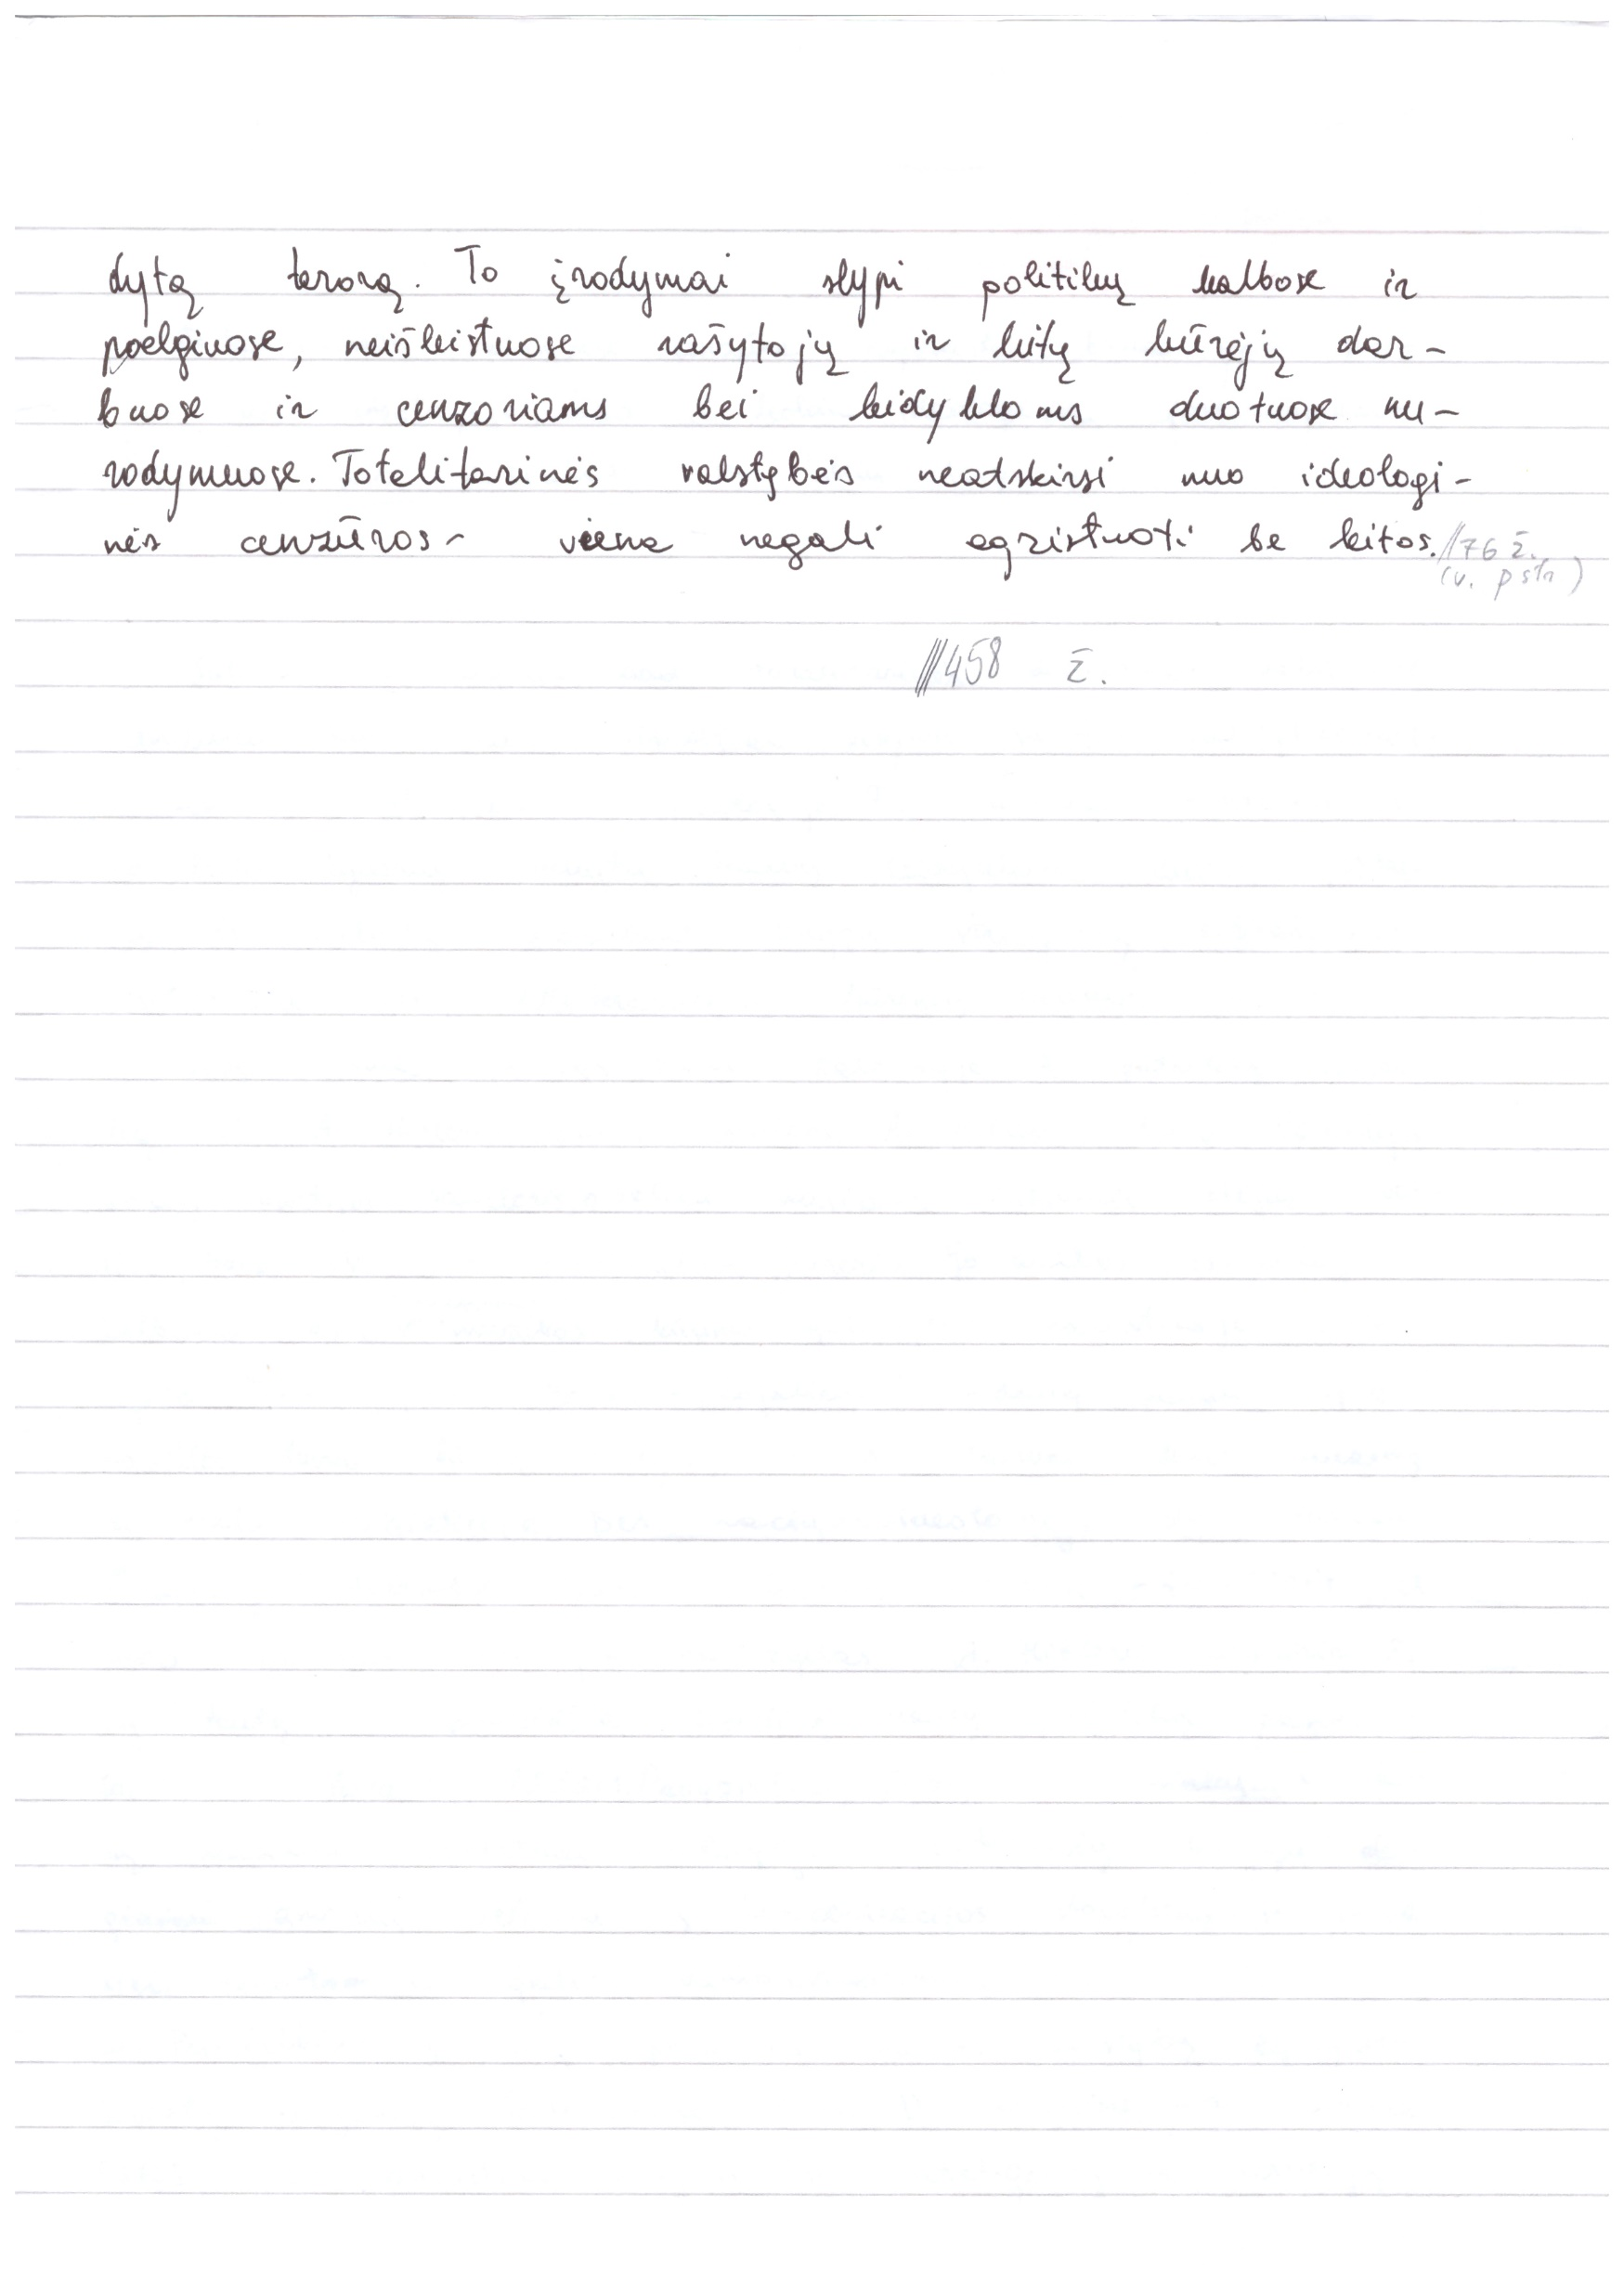 dytą terorą. To įrodymai slypi politikų kalbose ir
poelgiuose, neišleistuose rašytojų ir kitų kūrėjų dar-
buose ir cenzoriams bei leidykloms duotuose nu-
rodymuose. Totalitarinės valstybės neatskirsi nuo ideologi-
nės cenzūros - viena negali egzistuoti be kitos. //76 ž.
(v. pstr)
///458 ž.